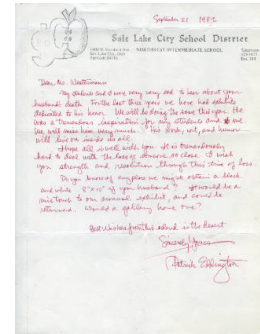 September 21 1982
Salt Lake City School District
NORTHWEST INTERMEDIATE SCHOOL
Dear Mrs. Westermann
My students and I were very very sad to hear about your
husbands death. For the last three years we have had exhibits
dedicated to his honor. We will be doing the same this year. He
was a tremendous inspiration for my students and me
We will miss him very much. His work, wit, and humor
will live on inside us all.
I hope all is well with you. It is tremendously
hard to deal with the loss of someone so close. I wish
you strength and resolution through this time of loss.
Do you know of any place we might obtain a black
and white 8" x 10" of your husband? It would be a
nice touch to our annual exhibit, and could be
returned. Would a gallery have one?
Best Wishes from this school in the Desert
Sincerely Yours
Patrick Eddington